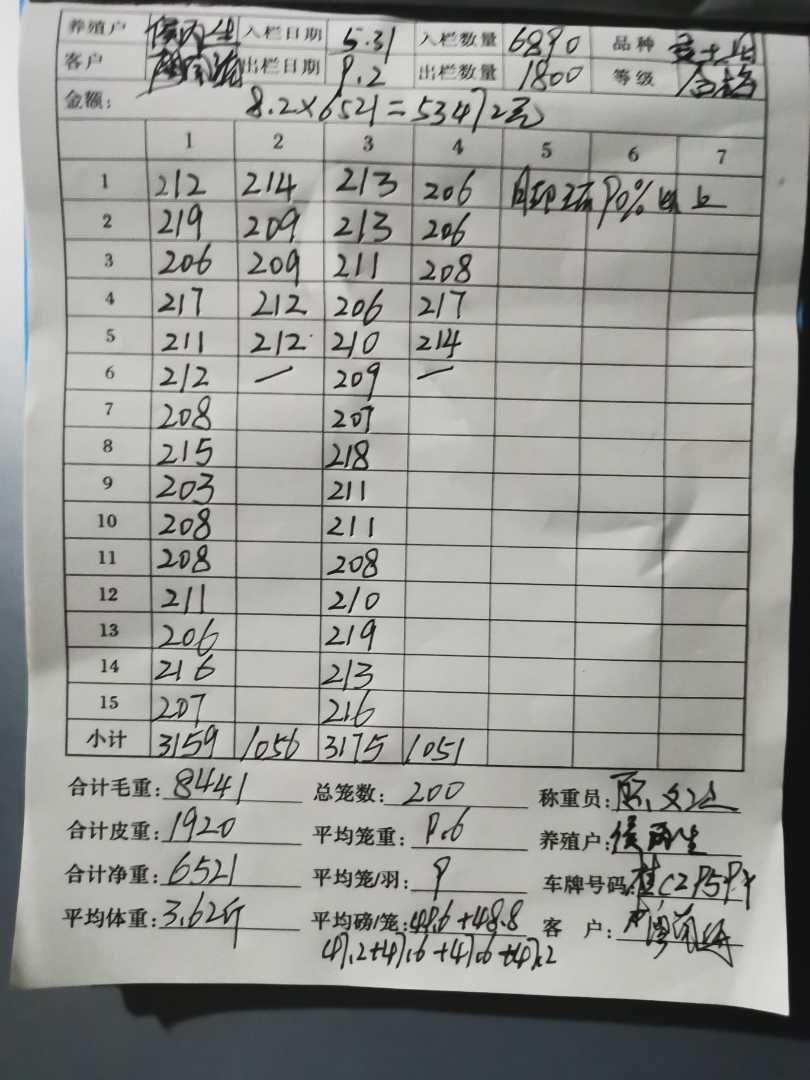 养殖户 侯丙生 入栏日期 5.31 入栏数量 6890 品种
客户 出栏日期 9.2 出栏数量 1800 等级 合格
金额: 8.2×6521=53472元
1 2 3 4 5 6 7
1 212 214 213 206 90%以上
2 219 209 213 206
3 206 209 211 208
4 217 212 206 217
5 211 212 210 214
6 212 — 209 —
7 208 207
8 215 218
9 203 211
10 208 211
11 208 208
12 211 210
13 206 219
14 216 213
15 207 216
小计 3159 1056 3175 1051
合计毛重: 8441 总笼数: 200 称重员:
合计皮重: 1920 平均笼重: 9.6 养殖户: 侯丙生
合计净重: 6521 平均笼/羽: 9 车牌号码:
平均体重: 3.62斤 平均磅/笼: 48.6+48.8 客户:
47.2+47.6+47.6+47.2